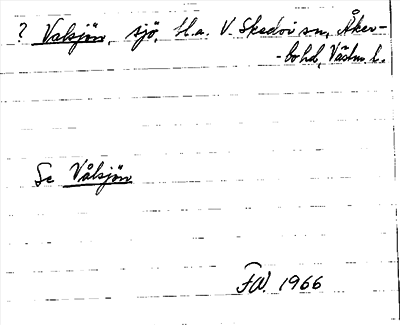 ? Valsjön, sjö, Bl.a. V. Skedvi sn, Åker-
-bo hd, Västm. l.
Se Vålsjön
F.W. 1966